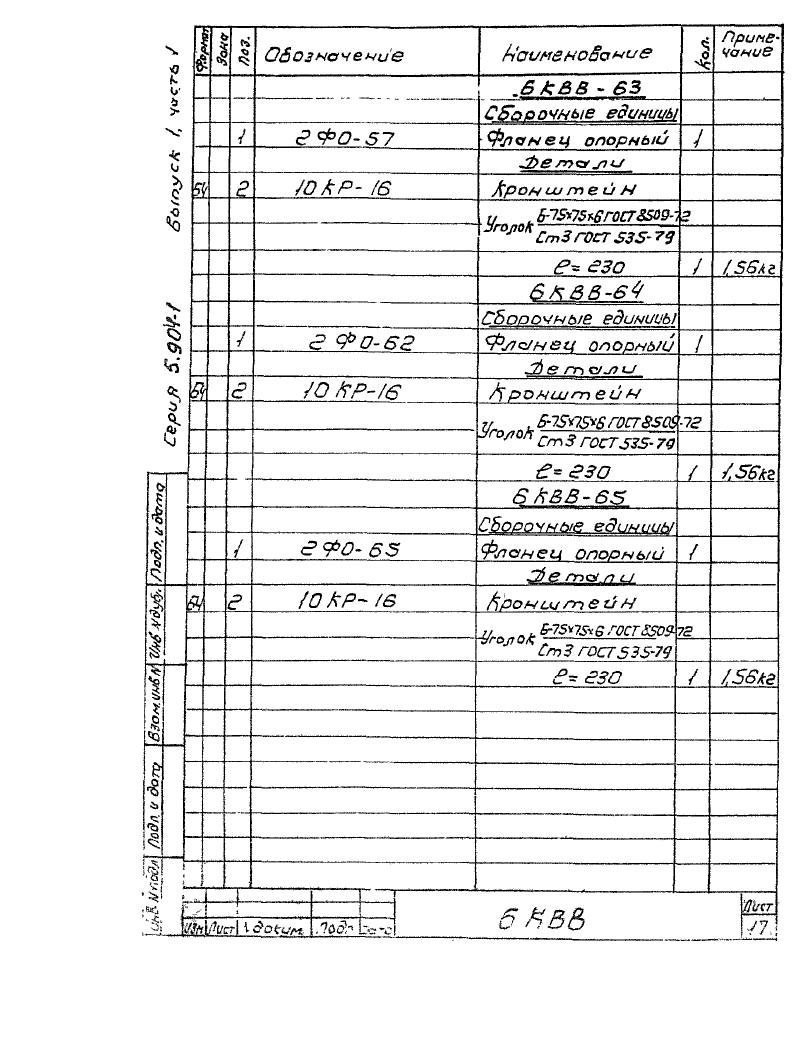 Серия 5.904-1 Выпуск 1, часть 1
Формат Зона Поз. Обозначение Наименование Кол. Примечание
6КВВ-63
Сборочные единицы
1 2ФО-57 Фланец опорный 1
Детали
Б4 2 10КР-16 Кронштейн
Уголок Б-75х75х6 ГОСТ 8509-72
Ст3 ГОСТ 535-79
ℓ=230 1 1,56кг
6КВВ-64
Сборочные единицы
1 2ФО-62 Фланец опорный 1
Детали
Б4 2 10КР-16 Кронштейн
Уголок Б-75х75х6 ГОСТ 8509-72
Ст3 ГОСТ 535-79
ℓ=230 1 1,56кг
6КВВ-65
Сборочные единицы
1 2ФО-65 Фланец опорный 1
Детали
Б4 2 10КР-16 Кронштейн
Уголок Б-75х75х6 ГОСТ 8509-72
Ст3 ГОСТ 535-79
ℓ=230 1 1,56кг
Подп. и дата
Инв N дубл.
Взам инв N
Подп. и дата
Инв N подл
Изм Лист докум. Подп
6КВВ
Лист
17